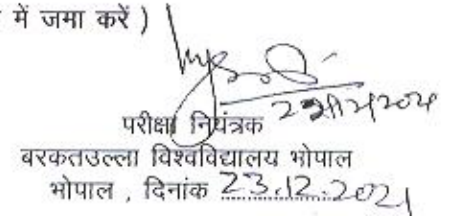 में जमा करें )
परीक्षा नियंत्रक
बरकतउल्ला विश्वविद्यालय भोपाल
भोपाल , दिनांक 23.12.2021